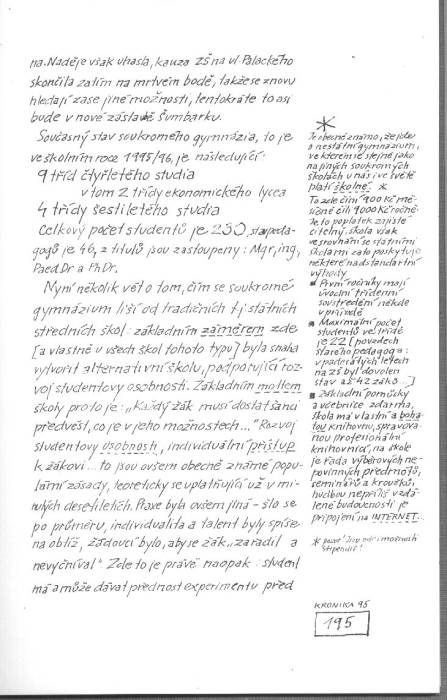 na. Naděje však uhasla, kauza ZŠ na ul. Palackého
skončila zatím na mrtvém bodě, takže se znovu
hledají zase jiné možnosti, tentokráte to asi
bude v nové zástavě Šumbarku.
Současný stav soukromého gymnázia, to je
ve školním roce 1995/96, je následující:
9 tříd čtyřletého studia
v tom 2 třídy ekonomického lycea
4 třídy šestiletého studia
Celkový počet studentů je 230, st.
gogů je 46, z titulů jsou zastoupeny: Mgr, ing,
PaedDr a PhDr.
Nyní několik vět o tom, čím se soukromé
gymnázium liší od tradičních tj. státních
středních škol: základním záměrem zde
[a vlastně u všech škol tohoto typu] byla snaha
vytvořit alternativní školu, podporující roz-
voj studentovy osobnosti. Základním mottem
školy proto je: „Každý žák musí dostat šanci
předvést, co je v jeho možnostech..." Rozvoj
studentovy osobnosti, individuální přístup
k žákovi... to jsou ovšem obecně známé popu-
lární zásady, teoreticky se uplatňující už v mi-
nulých desetiletích. Praxe byla ovšem jiná - šlo se
po průměru, individualita a talent byly spíše
na obtíž, žádoucí bylo, aby se žák „zařadil a
nevyčníval". Zde to je právě naopak: student
má a může dávat přednost experimentu před
*
Je obecně známo, že jde
o nestátní gymnázium,
ve kterém se stejně jako
na jiných soukromých
školách u nás i ve světě
platí školné. *
To zde činí 900 Kč mě-
síčně čili 9000 Kč ročně.
Je to poplatek zajisté
citelný, škola však
ve srovnání se státními
školami zato poskytuje
některé nadstandartní
výhody
První ročníky mají
úvodní třídenní
soustředění někde
v přírodě
Maximální počet
studentů ve třídě
je 22 [povzdech
starého pedagoga:
v padesátých letech
na ZŠ byl dovolen
stav až 42 žáků...]
Základní pomůcky
a učebnice zdarma,
škola má vlastní a boha-
tou knihovnu, spravova-
nou profesionální
knihovnicí, na škole
je řada výběrových ne-
povinných předmětů,
seminářů a kroužků,
hudbou nepříliš vzdá-
lené budoucnosti je
připojení na INTERNET...
* pozn: jsou zde i možnosti
stipendií!
KRONIKA 95
195